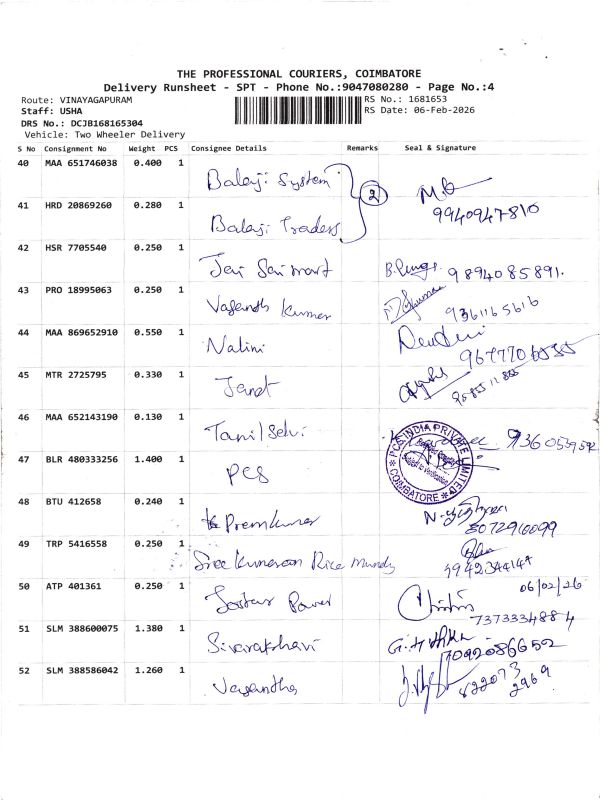 THE PROFESSIONAL COURIERS, COIMBATORE
Delivery Runsheet - SPT - Phone No.:9047080280 - Page No.:4
Route: VINAYAGAPURAM
Staff: USHA
DRS No.: DCJB168165304
Vehicle: Two Wheeler Delivery
RS No.: 1681653
RS Date: 06-Feb-2026
S No Consignment No Weight PCS Consignee Details Remarks Seal & Signature
40 MAA 651746038 0.400 1 Balaji System 2
9940947810
41 HRD 20869260 0.280 1 Balaji Traders
42 HSR 7705540 0.250 1 Jai Sai mart 9894085891.
43 PRO 18995063 0.250 1 Vasanth Kumar 9361165616
44 MAA 869652910 0.550 1 Nalini
45 MTR 2725795 0.330 1
46 MAA 652143190 0.130 1 Tamil Selvi
47 BLR 480333256 1.400 1 PCS
PCS INDIA PRIVATE LIMITED
COIMBATORE
48 BTU 412658 0.240 1 Premkumar 8072910099
49 TRP 5416558 0.250 1 Sree Kumaran Rice Mundy
50 ATP 401361 0.250 1 Power 06/02/26
7373334884
51 SLM 388600075 1.380 1 7092086652
52 SLM 388586042 1.260 1 Vasantha 822073
2969